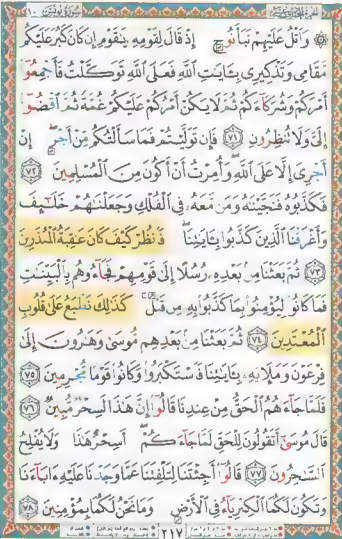 سورة يونس
۞ وَٱتْلُ عَلَيْهِمْ نَبَأَ نُوحٍ إِذْ قَالَ لِقَوْمِهِۦ يَٰقَوْمِ إِن كَانَ كَبُرَ عَلَيْكُم
مَّقَامِى وَتَذْكِيرِى بِـَٔايَٰتِ ٱللَّهِ فَعَلَى ٱللَّهِ تَوَكَّلْتُ فَأَجْمِعُوٓا۟
أَمْرَكُمْ وَشُرَكَآءَكُمْ ثُمَّ لَا يَكُنْ أَمْرُكُمْ عَلَيْكُمْ غُمَّةً ثُمَّ ٱقْضُوٓا۟
إِلَىَّ وَلَا تُنظِرُونِ ﴿٧١﴾ فَإِن تَوَلَّيْتُمْ فَمَا سَأَلْتُكُم مِّنْ أَجْرٍ ۖ إِنْ
أَجْرِىَ إِلَّا عَلَى ٱللَّهِ ۖ وَأُمِرْتُ أَنْ أَكُونَ مِنَ ٱلْمُسْلِمِينَ ﴿٧٢﴾
فَكَذَّبُوهُ فَنَجَّيْنَٰهُ وَمَن مَّعَهُۥ فِى ٱلْفُلْكِ وَجَعَلْنَٰهُمْ خَلَٰٓئِفَ
وَأَغْرَقْنَا ٱلَّذِينَ كَذَّبُوا۟ بِـَٔايَٰتِنَا ۖ فَٱنظُرْ كَيْفَ كَانَ عَٰقِبَةُ ٱلْمُنذَرِينَ
﴿٧٣﴾ ثُمَّ بَعَثْنَا مِنۢ بَعْدِهِۦ رُسُلًا إِلَىٰ قَوْمِهِمْ فَجَآءُوهُم بِٱلْبَيِّنَٰتِ
فَمَا كَانُوا۟ لِيُؤْمِنُوا۟ بِمَا كَذَّبُوا۟ بِهِۦ مِن قَبْلُ ۚ كَذَٰلِكَ نَطْبَعُ عَلَىٰ قُلُوبِ
ٱلْمُعْتَدِينَ ﴿٧٤﴾ ثُمَّ بَعَثْنَا مِنۢ بَعْدِهِم مُّوسَىٰ وَهَٰرُونَ إِلَىٰ
فِرْعَوْنَ وَمَلَإِي۟هِۦ بِـَٔايَٰتِنَا فَٱسْتَكْبَرُوا۟ وَكَانُوا۟ قَوْمًا مُّجْرِمِينَ ﴿٧٥﴾
فَلَمَّا جَآءَهُمُ ٱلْحَقُّ مِنْ عِندِنَا قَالُوٓا۟ إِنَّ هَٰذَا لَسِحْرٌ مُّبِينٌ ﴿٧٦﴾
قَالَ مُوسَىٰٓ أَتَقُولُونَ لِلْحَقِّ لَمَّا جَآءَكُمْ ۖ أَسِحْرٌ هَٰذَا وَلَا يُفْلِحُ
ٱلسَّٰحِرُونَ ﴿٧٧﴾ قَالُوٓا۟ أَجِئْتَنَا لِتَلْفِتَنَا عَمَّا وَجَدْنَا عَلَيْهِ ءَابَآءَنَا
وَتَكُونَ لَكُمَا ٱلْكِبْرِيَآءُ فِى ٱلْأَرْضِ وَمَا نَحْنُ لَكُمَا بِمُؤْمِنِينَ ﴿٧٨﴾
٢١٧